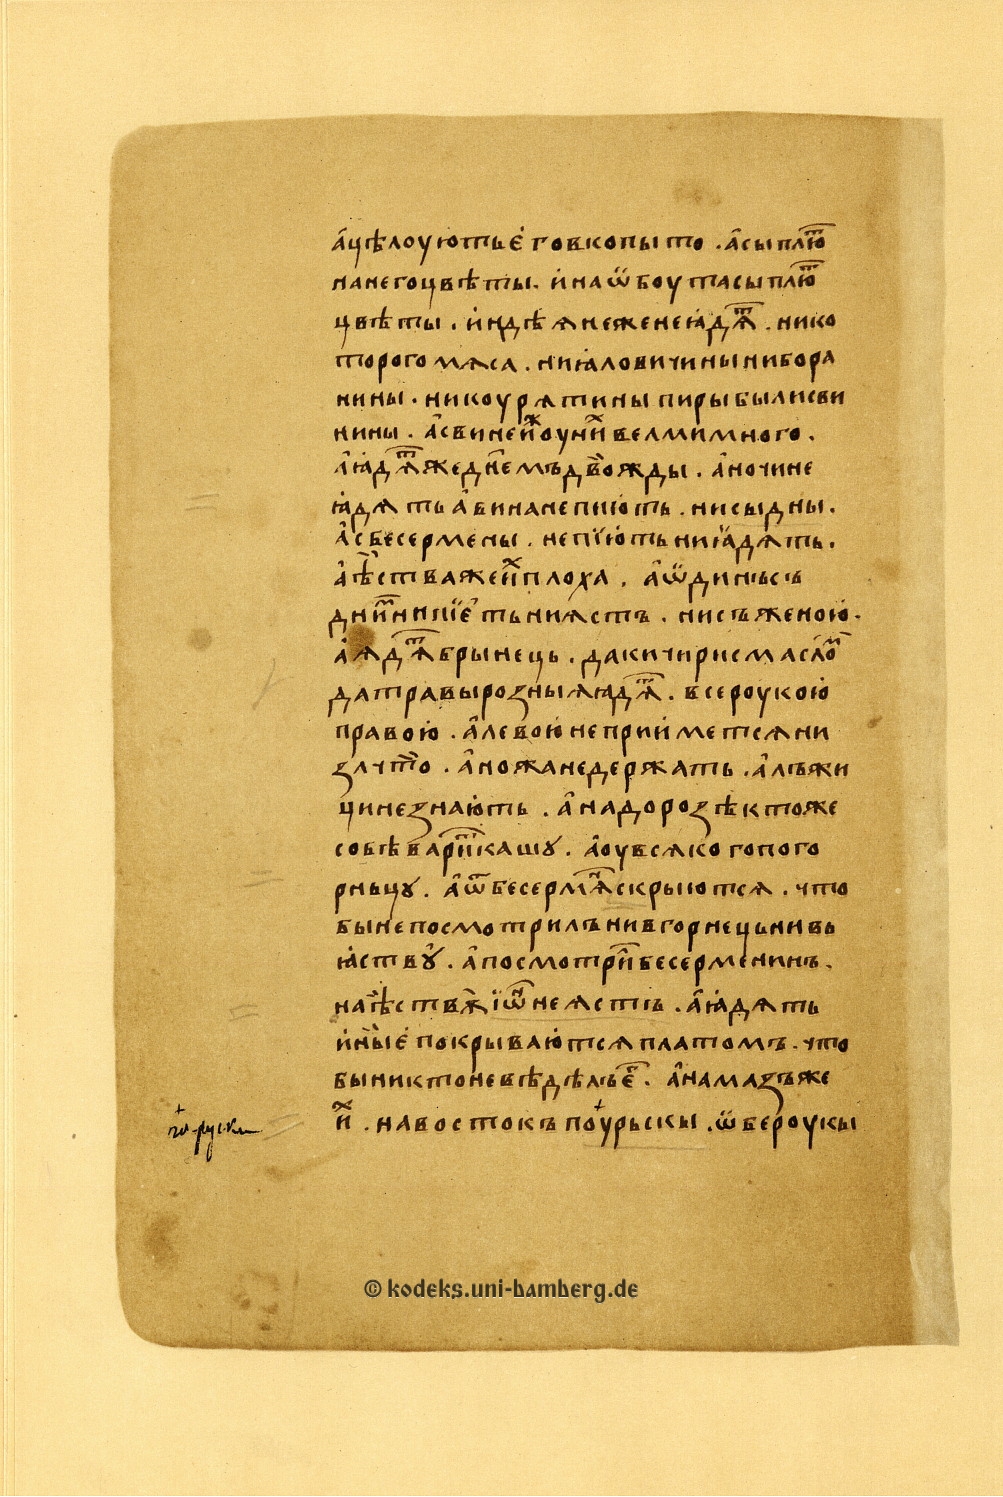 а҆цѣлоую́тьє҆ говкопыто . а҆сыплю҃т
нанегоцвѣты . и҆наѿ боутасыплю҃т
цвѣты . и҆ндѣ ѧнежене ꙗ҆дѧ҃т . нико
торого мѧса . ниꙗ҆ловичины нибора
нины . никоурѧтины нирыбы нисви
нины . а҆свинеи҃жоуни҃х велмимного .
а҆ꙗ҆дѧ҃тжеднемъдвожды . а҆ночине
ꙗ҆дѧть а҆винанепию҆ть . нисыдны .
а҆сбесермены . непїю҆ть ниꙗ҆дѧть .
а҆ѣстважеи҃хплоха . а҆ѡ҆динъсъ
дни҃мнипїе҆тьниѧстъ . нисъженою҆ .
а҆ѧдѧ҃тбрынець . дакичирисмасло҃м
датравырозныѧꙗдѧ҃т . всероукою҆
правою҆ . а҆левою҆неприи҆метсѧни
зачто . а҆ножанедержать . а҆лъжи
цинезнаю҆ть . а҆надорозѣктоже
собѣвари҃ткашꙋ . а҆оувсѧкогопого
рньцꙋ . а҆ѿбесермѧ҃нскрыютсѧ . что
бынепосмотрилънивгорнецьнивь
ꙗ҆ствꙋ҆ . а҆посмотри҃тбесерменинъ .
наѣствѫ҆ и҆ѡ҃ннеѧсть . а҆ꙗ҆дѧть
и҆ныє҆ покрываю҆тсѧплатомъ . что
быниктоневѣдѣлъє҃г . а҆намазъже
и҃х . навостокъ поурьскы . ѡбероукы
по-руски
© kodeks.uni-bamberg.de